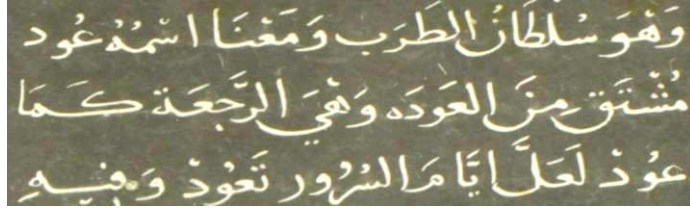 وَهُوَ سُلْطَانُ الطَرَب وَمَعْنَا اسْمُهُ عُود
مُشْتَق مِنَ العَودَه وَهْيَ الرَّجعَة كَمَا
عُودْ لَعَلَّ ايَّامَ السُرُور تَعُودْ وَفِيهِ